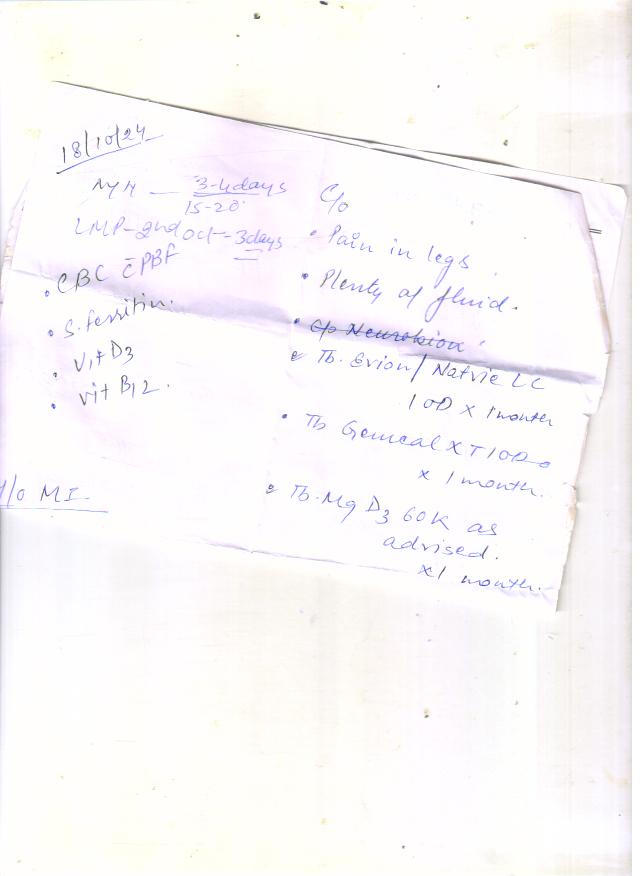 18/10/24
3-4 days
15-20
LMP - 2nd Oct - 3 days
• CBC c̄ PBF
• S. ferritin.
• Vit D3
• Vit B12.
MI
C/o
• Pain in legs
• Plenty of fluid.
• C/o Neurobion
• Tb. Evion / Natvie LC
1 OD x 1 month
• Tb Gemcal XT 1 OD
x 1 month.
• Tb. Mg D3 60K as
advised.
x 1 month.